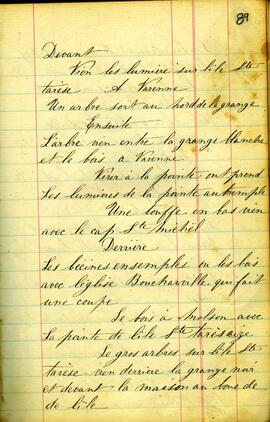 89
Devant
Vien les lumière sur l'ile Ste
tarèse A Varenne
Un arbre sort au nord de la grange
Ensuite
L'arbre vien entre la grange blanche
et le bois a Varenne
Virer à la pointe on prend
Les lumières de la pointe au
Une touffe en bas vien
avec le cap St michel
Derrière
Les ensemples ou les bois
avec léglise Boucharville qui fait
une coupe
Le bois à Molson avec
La pointe de l'ile Ste tarèse
Le gros arbres sur l'ile Ste
tarèse vien derrière la grange noir
et devant la maison au bout de
de l'ile